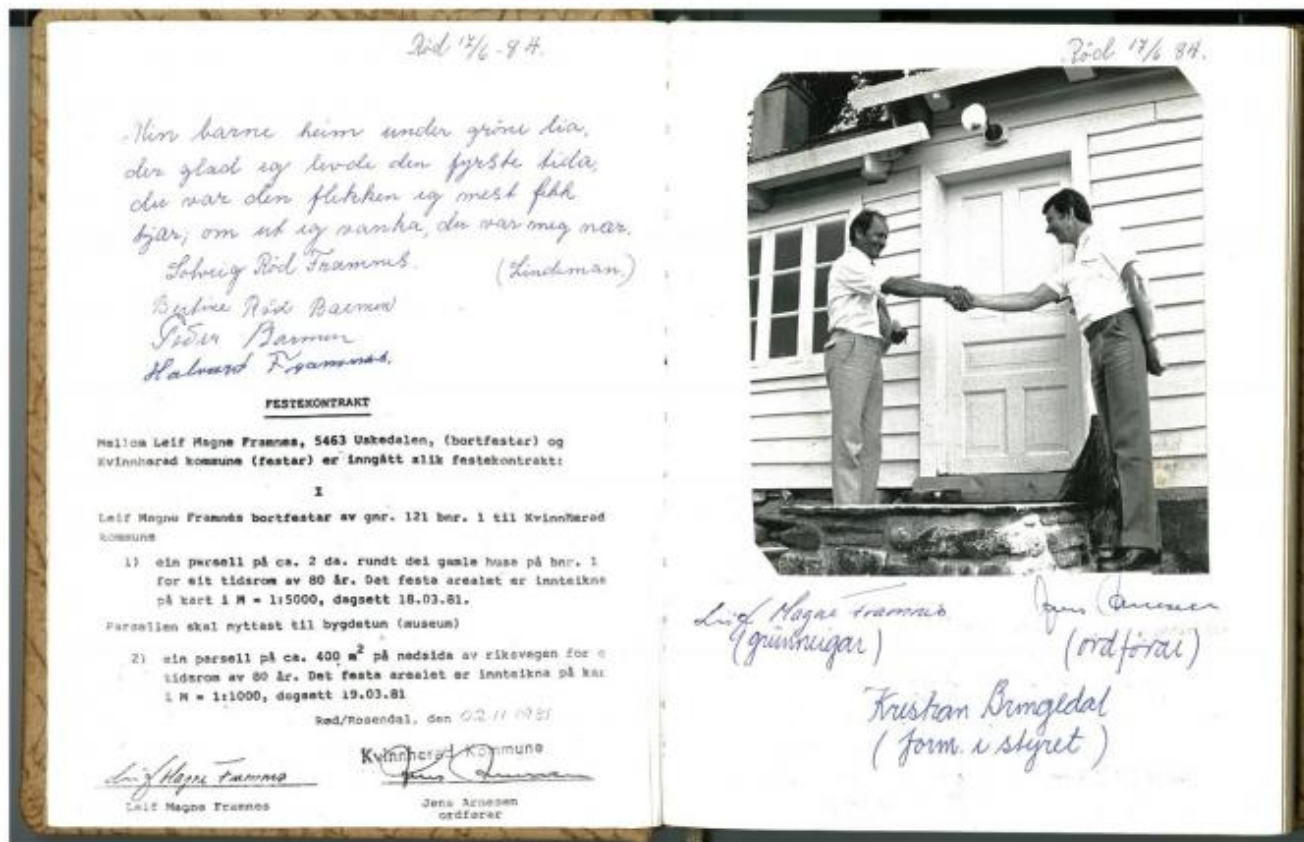 Rød 17/6-84.
Min barne heim under gröne lia,
der glad eg levde den fyrste tida,
du var den flekken eg mest fekk
kjær, om ut eg vanka, du var meg nær.
Solveig Röd Framnes. (Lindeman.)
Bertine Röd Barmen
Peder Barmen
Halvard Framnes.
FESTEKONTRAKT
Mellom Leif Magne Framnes, 5463 Uskedalen, (bortfestar) og
Kvinnherad kommune (festar) er inngått slik festekontrakt:
I
Leif Magne Framnes bortfestar av gnr. 121 bnr. 1 til Kvinnherad
kommune
1) ein parsell på ca. 2 da. rundt dei gamle husa på bnr. 1
for eit tidsrom av 80 år. Det festa arealet er innteikna
på kart i M = 1:5000, dagsett 18.03.81.
Parsellen skal nyttast til bygdetun (museum)
2) ein parsell på ca. 400 m² på nedsida av riksvegen for e
tidsrom av 80 år. Det festa arealet er innteikna på kar
i M = 1:1000, dagsett 19.03.81
Rød/Rosendal, den 02.11.1981
Kvinnherad Kommune
Leif Magne Framnes
Jens Arnesen
Leif Magne Framnes
Jens Arnesen
ordførar
Rød 17/6 84.
Leif Magne Framnes
(grunneigar)
Jens Arnesen
(ordförar)
Kristian Bringedal
(form. i styret)